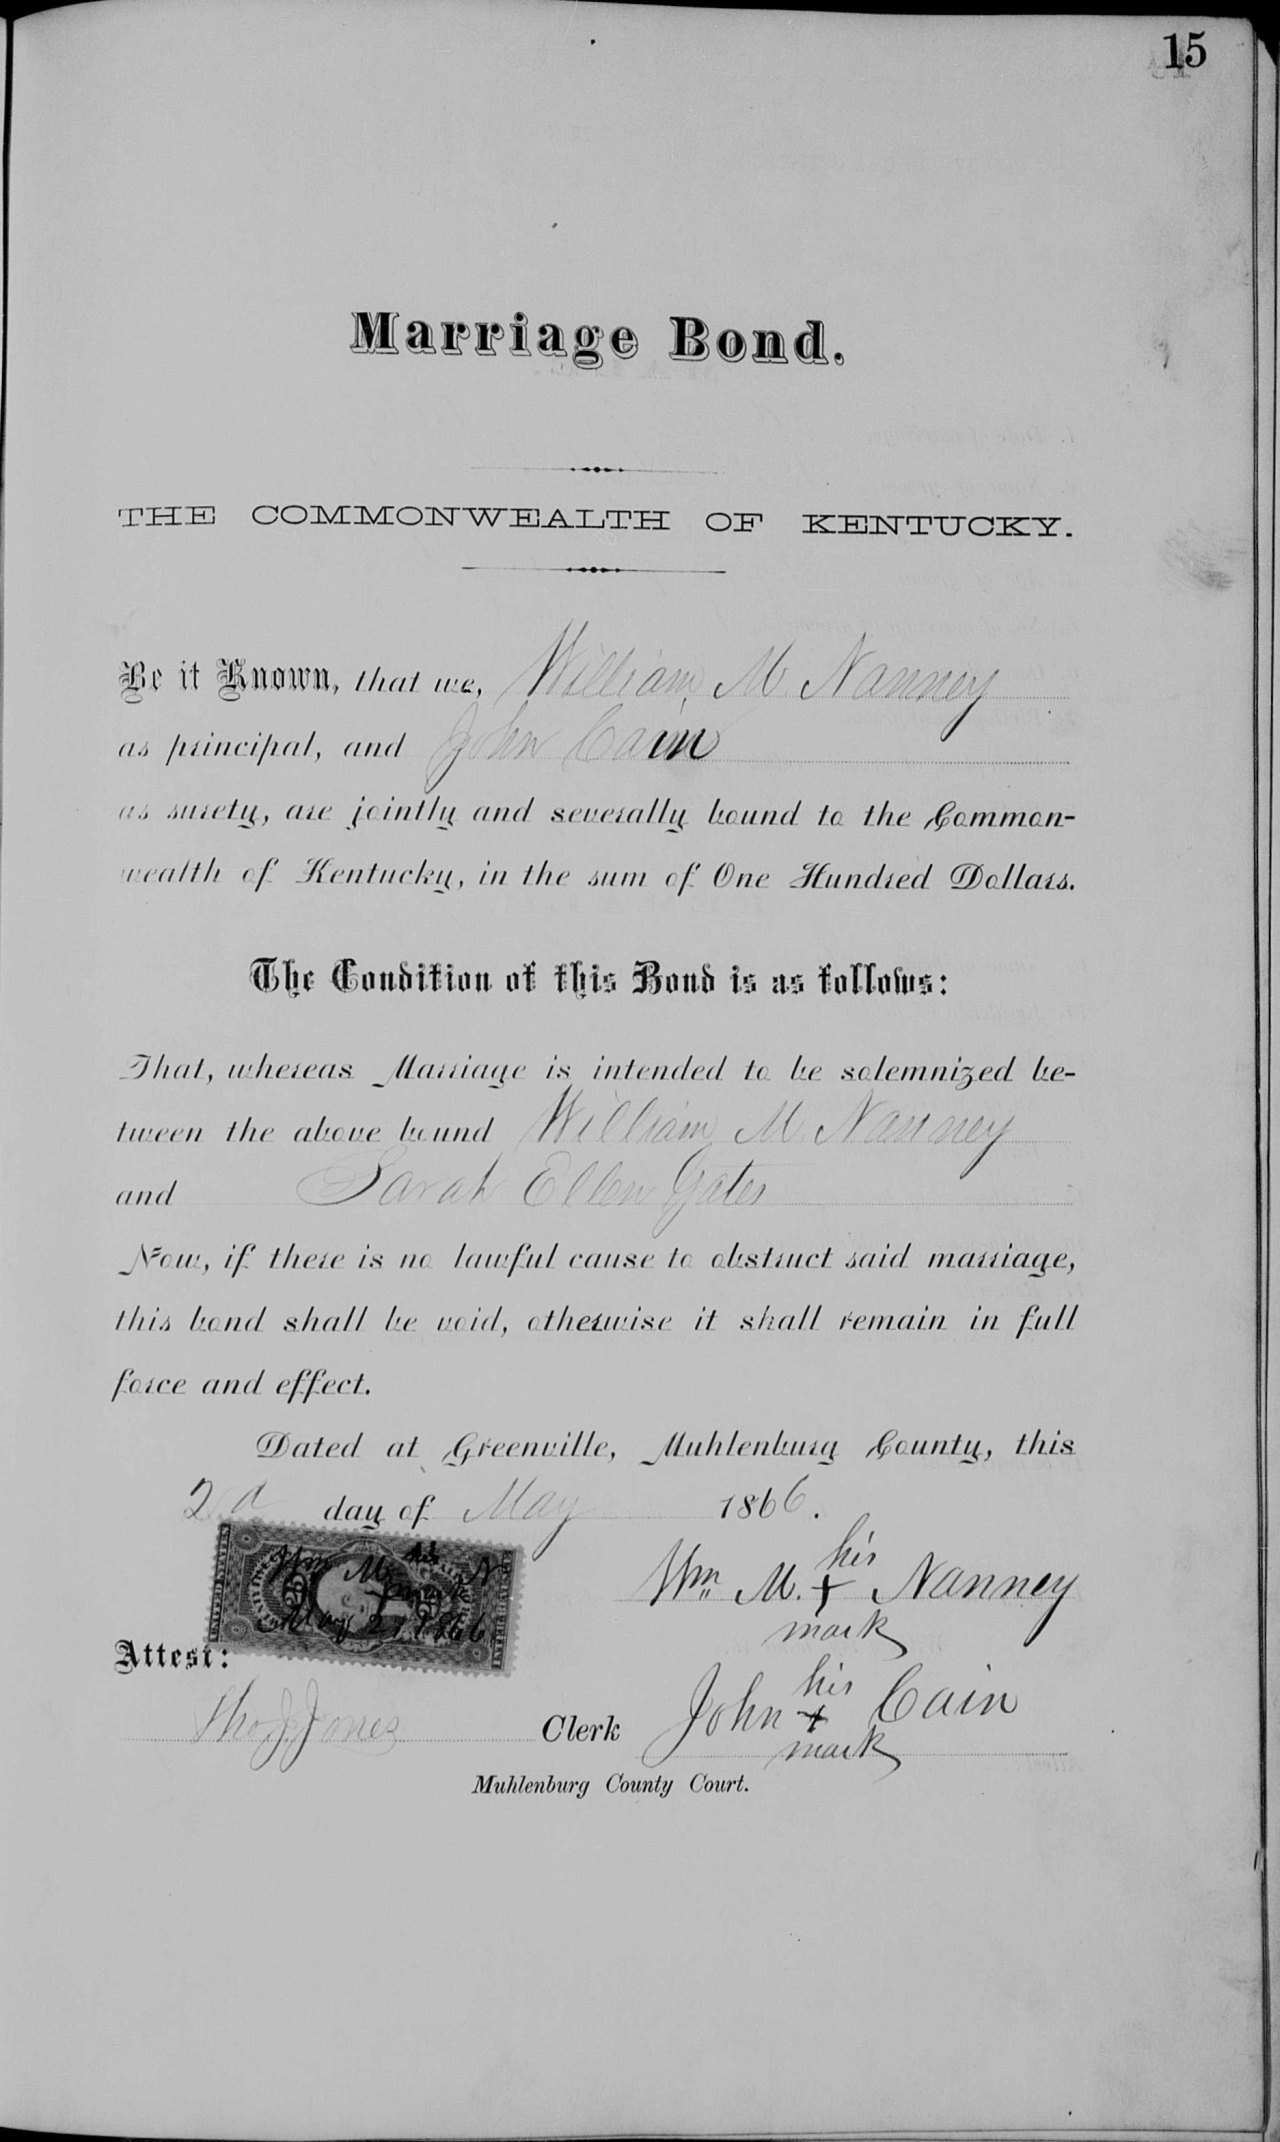 15
Marriage Bond.
THE COMMONWEALTH OF KENTUCKY.
Be it Known, that we, William M. Nanney
as principal, and John Cain
as surety, are jointly and severally bound to the Common-
wealth of Kentucky, in the sum of One Hundred Dollars.
The Condition of this Bond is as follows:
That, whereas Marriage is intended to be solemnized be-
tween the above bound William M. Nanney
and Sarah Ellen Gates
Now, if there is no lawful cause to obstruct said marriage,
this bond shall be void, otherwise it shall remain in full
force and effect.
Dated at Greenville, Muhlenburg County, this
2d day of May 1866.
his
Wm M. + Nanney
mark
Wm M. his N
mark
May 2 1866
25 25
Attest:
his
Thos. J. Jones Clerk John + Cain
mark
Muhlenburg County Court.